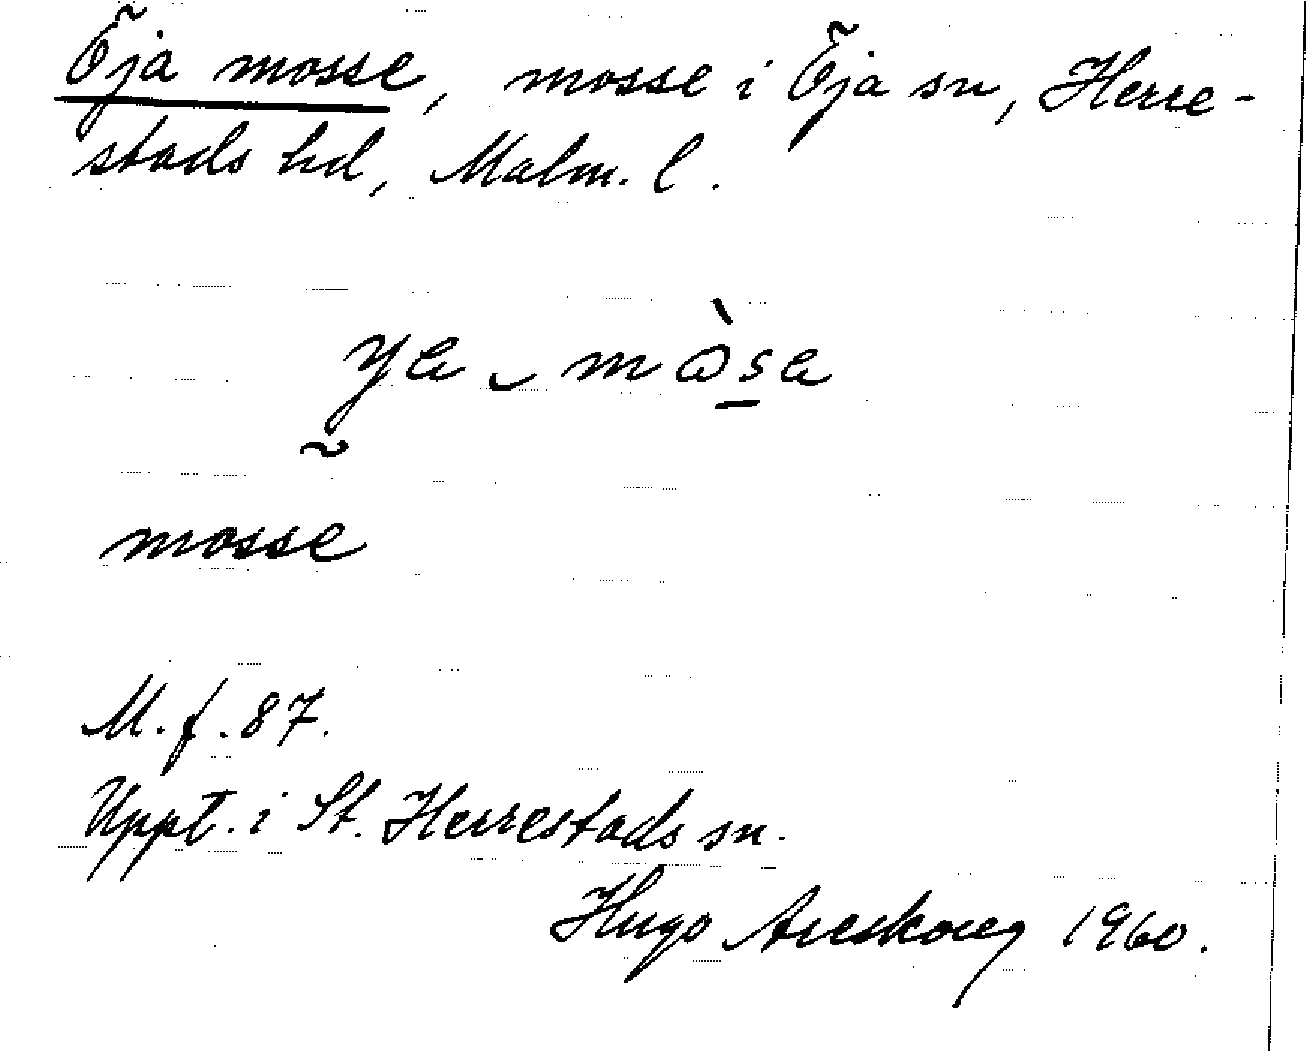 Öja mosse, mosse i Öja sn, Herre-
stads hd, Malm. l.
mosse
M.f. 87.
Uppt. i St. Herrestads sn.
Hugo Areskoug 1960.